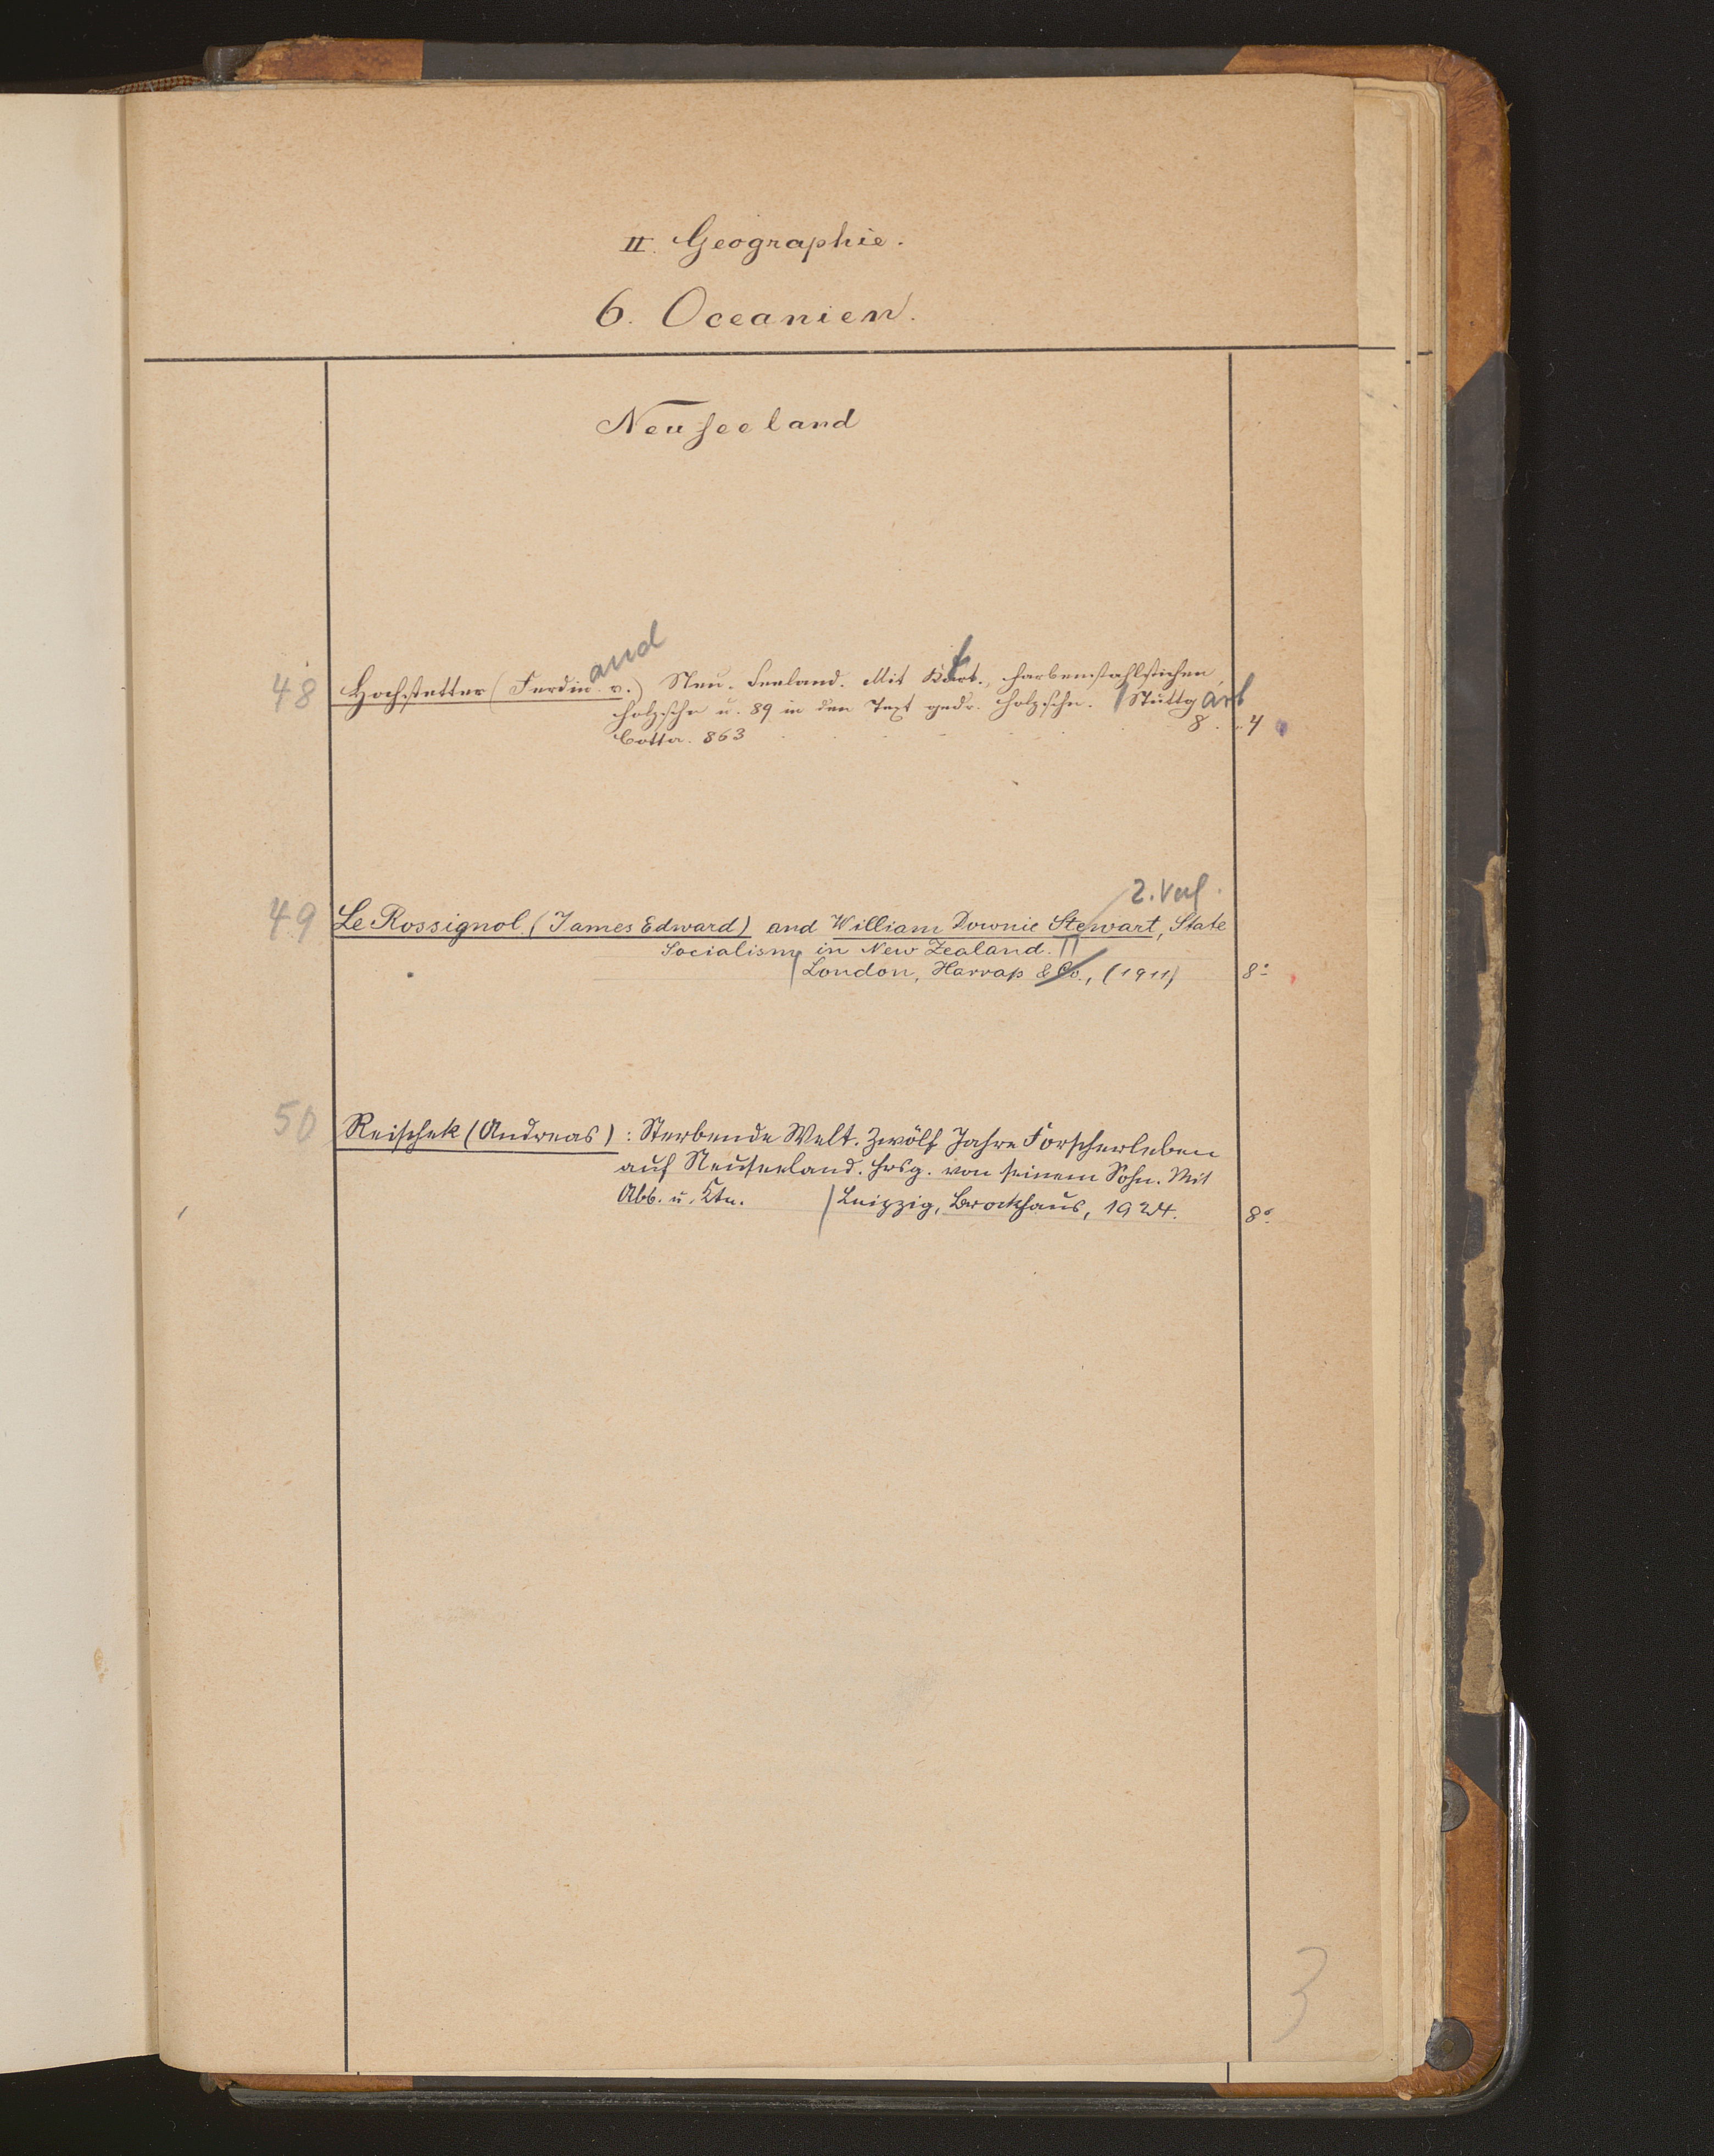 II. Geographie.
6. Oceanien.
Neuseeland
and
48 Hochstetter (Ferdin. v.) Neu-Seeland. Mit Kart., Farbenstahlstichen,
Holzschn u. 89 in den Text gedr. Holzschn. Stuttgart
Cotta. 863 8. . 4
2. Verf.
49 Le Rossignol (James Edward) and William Downie Stewart, State
Socialism in New Zealand.
London, Harrap & Co., (1911) 8°
50 Reischek (Andreas): Sterbende Welt. Zwölf Jahre Forscherleben
auf Neuseeland. Hrsg. von seinem Sohn. Mit
Abb. u. Ktn. Leipzig, Brockhaus, 1924. 8°
3